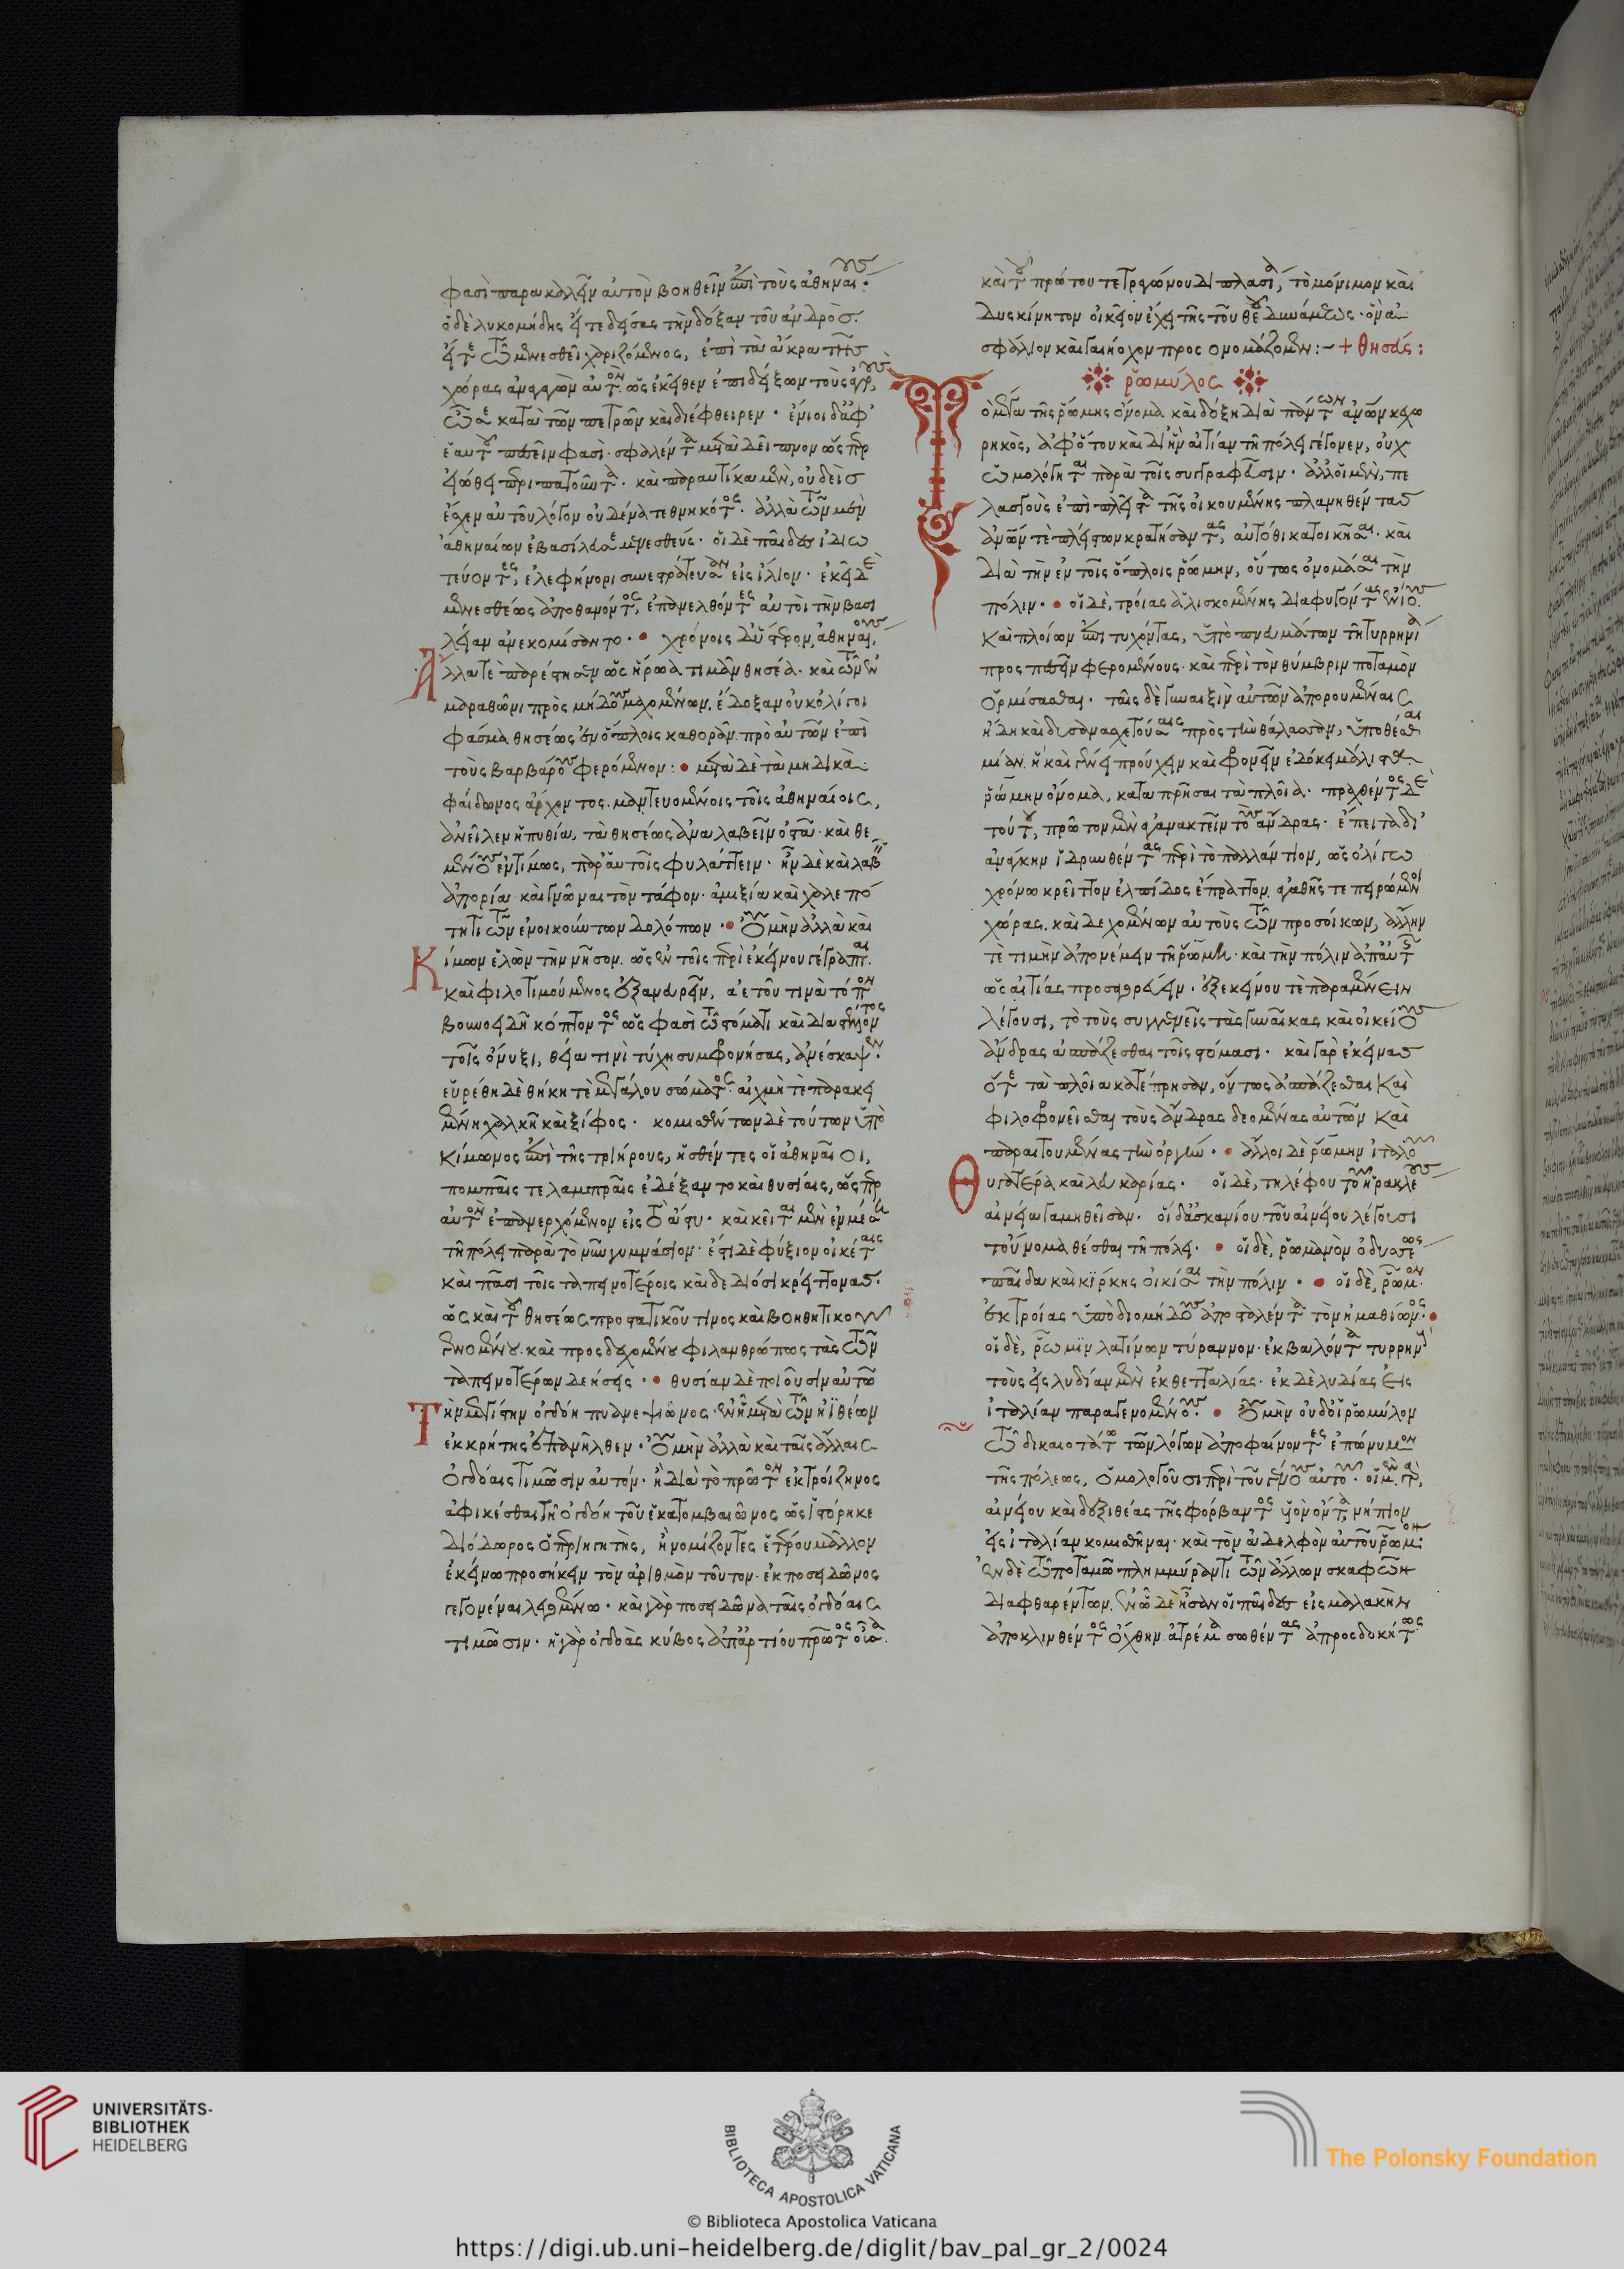 φασὶ παρακαλεῖν αὐτὸν βοηθεῖν ἐπὶ τοὺς ἀθηναίους·
ὁ δὲ λυκομήδης εἴτε δείσας τὴν δόξαν τοῦ ἀνδρὸς.
εἴτε τῶ μενεσθεῖ χαριζόμενος, ἐπὶ τὰ ἄκρα τῆς
χώρας ἀναγαγὼν αὐτὸν. ὡς ἐκεῖθεν ἐπιδείξων τοὺς ἀγροὺς,
ὦσε κατὰ τῶν πετρῶν καὶ διέφθειρεν· ἔνιοι δ' ἀφ'
ἑαυτοῦ πεσεῖν φασὶ· σφαλέντα μετὰ δεῖπνον ὥσπερ
εἰώθει περιπατοῦντα· καὶ παραυτίκα μὲν, οὐδεὶς
ἔσχεν αὐτοῦ λόγον οὐδένα τεθνηκότος· ἀλλὰ τῶν μὲν
ἀθηναίων ἐβασίλευσε μενεσθεύς· οἱ δὲ παῖδες ἰδιω
τεύοντες, ἐλεφήνορι συνεστράτευσαν εἰς ἴλιον· ἐκεῖ δὲ
μενεσθέως ἀποθανόντος, ἐπανελθόντες αὐτοὶ τὴν βασι
λείαν ἀνεκομίσαντο· χρόνοις δ' ὕστερον, ἀθηναίους,
Ἄλλα τε παρέστησεν ὡς ἥρωα τιμᾶν θησέα· καὶ τῶν ἐν
μαραθῶνι πρὸς μήδους μαχομένων. ἔδοξαν οὐκ ὀλίγοι
φάσμα θησέως ἐν ὅπλοις καθορᾶν. πρὸ αὐτῶν ἐπὶ
τοὺς βαρβάρους φερόμενον: μετὰ δὲ τὰ μηδικὰ
φαίδωνος ἄρχοντος. μαντευομένοις τοῖς ἀθηναίοις,
ἀνεῖλεν ἡ πυθία, τὰ θησέως ἀναλαβεῖν ὀστᾶ· καὶ θε
μένους ἐντίμως, παρ' αὑτοῖς φυλάττειν· ἦν δὲ καὶ λαβεῖν
ἀπορία· καὶ γνῶναι τὸν τάφον· ἀμιξία καὶ χαλεπό
τητι τῶν ἐνοικούντων δολόπων· οὐ μὴν ἀλλὰ καὶ
Κίμων ἑλὼν τὴν νῆσον. ὡς ἐν τοῖς περὶ ἐκείνου γέγραπται.
καὶ φιλοτιμούμενος ἐξανευρεῖν, ἀετοῦ τινὰ τόπον
βουνοειδῆ κόπτοντος ὥς φασὶ τῶ στόματι καὶ διαστέλλοντος
τοῖς ὄνυξι, θεία τινὶ τύχη συμφρονήσας, ἀνέσκαψεν·
εὑρέθη δὲ θήκη τὲ μεγάλου σώματος· αἰχμή τὲ παρακει
μένη χαλκῆ καὶ ξίφος· κομισθέντων δὲ τούτων ὑπὸ
κίμωνος ἐπὶ τῆς τριήρους, ἡσθέντες οἱ ἀθηναῖοι,
πομπαῖς τε λαμπραῖς ἐδέξαντο καὶ θυσίαις, ὥσπερ
αὐτὸν ἐπανερχόμενον εἰς τὸ ἄστυ· καὶ κεῖται μὲν ἐν μέση
τῆ πόλει παρὰ τὸ νῦν γυμνάσιον· ἔστι δὲ φύξιον οἰκέταις
καὶ πᾶσι τοῖς ταπεινοτέροις καὶ δεδιόσι κρείττονας·
ὡς καὶ τοῦ θησέως προστατικοῦ τινος καὶ βοηθητικοῦ
γενομένου. καὶ προσδεχομένου φιλανθρώπως τὰς τῶν
ταπεινοτέρων δεήσεις· θυσίαν δὲ ποιοῦσιν αὐτῶ
Τὴν μεγίστην ὀγδόη πυανεψιῶνος· ἐν ἧ μετὰ τῶν ἠϊθέων
ἐκ κρήτης ἐπανῆλθεν· οὐ μὴν ἀλλὰ καὶ ταῖς ἄλλαις
ὀγδόαις τιμῶσιν αὐτόν· ἢ διὰ τὸ πρῶτον ἐκ τροίζηνος
ἀφικέσθαι τῆ ὀγδόη τοῦ ἑκατομβαιῶνος ὡς ἱστόρηκε
διόδωρος ὁ περιηγητὴς, ἢ νομίζοντες ἑτέρου μᾶλλον
ἐκείνω προσήκειν τὸν ἀριθμὸν τοῦτον· ἐκ ποσειδῶνος
γεγονέναι λεγομένω· καὶ γὰρ ποσειδῶνα ταῖς ὀγδόαις
τιμῶσιν· ἡ γὰρ ὀγδοὰς κύβος ἀπ' ἀρτίου πρῶτος οὖσα.
καὶ τοῦ πρώτου τετραγώνου διπλασία, τὸ μόνιμον καὶ
δυσκίνητον οἰκεῖον ἔχει τῆς τοῦ θεοῦ δυνάμεως· ὃν ἀ
σφάλιον καὶ γαιήοχον προσονομάζομεν:~ + θησεύς:
ῥωμύλος
Τὸ μέγα τῆς ῥώμης ὄνομα καὶ δόξη διὰ πάντων ἀνθρώπων κεχω
ρηκὸς, ἀφ' ὅτου καὶ δι' ἣν αἰτίαν τῆ πόλει γέγονεν, οὐχ
ὡμολόγηται παρὰ τοῖς συγγραφεῦσιν· ἀλλ' οἱ μὲν, πε
λασγοὺς ἐπὶ πλεῖστα τῆς οἰκουμένης πλανηθέντας
ἀνθρώπων τὲ πλείστων κρατήσαντας, αὐτόθι κατοικῆσαι· καὶ
διὰ τὴν ἐν τοῖς ὅπλοις ῥώμην, οὕτως ὀνομάσαι τὴν
πόλιν· οἱ δὲ, τροίας ἁλισκομένης διαφυγόντας ἐνίους.
καὶ πλοίων ἐπιτυχόντας, ὑπὸ πνευμάτων τῆ τυρρηνία
προσπεσεῖν φερομένους· καὶ περὶ τὸν θύμβριν ποταμὸν
ὁρμίσασθαι· ταῖς δὲ γυναιξὶν αὐτῶν ἀπορουμέναις
ἤδη καὶ δυσανασχετούσαις πρὸς τὴν θάλασσαν, ὑποθέσθαι
μίαν. ἣ καὶ γένει προύχειν καὶ φρονεῖν ἐδόκει μάλιστα
ῥώμην ὄνομα, καταπρῆσαι τὰ πλοῖα· πραχθέντος δὲ
τούτου, πρῶτον μὲν ἀγανακτεῖν τοὺς ἄνδρας· ἔπειτα δι'
ἀνάγκην ἱδρυνθέντας περὶ τὸ παλλάντιον, ὡς ὀλίγω
χρόνω κρεῖττον ἐλπίδος ἔπραττον. ἀγαθῆς τε πειρώμενοι
χώρας. καὶ δεχομένων αὐτοὺς τῶν προσοίκων, ἄλλην
τὲ τιμὴν ἀπονέμειν τῆ ῥώμη· καὶ τὴν πόλιν ἀπ' αὐτῆς
ὡς αἰτίας προσαγορεύειν· ἐξ ἐκείνου τὲ παραμένειν
λέγουσι, τὸ τοὺς συγγενεῖς τὰς γυναῖκας καὶ οἰκείους
ἄνδρας ἀσπάζεσθαι τοῖς στόμασι· καὶ γὰρ ἐκείνας
ὅτε τὰ πλοῖα κατέπρησαν, οὕτως ἀσπάζεσθαι καὶ
φιλοφρονεῖσθαι τοὺς ἄνδρας δεομένας αὐτῶν καὶ
παραιτουμένας τὴν ὀργήν· ἄλλοι δὲ ῥώμην ἰταλοῦ
Θυγατέρα καὶ λευκαρίας· οἱ δὲ, τηλέφου τοῦ ἡρακλέους
αἰνεία γαμηθεῖσαν· οἱ δ' ἀσκανίου τοῦ αἰνείου λέγουσι
τοὔνομα θέσθαι τῆ πόλει· οἱ δὲ, ῥωμανὸν ὀδυσσέως
παῖδα καὶ κίρκης οἰκίσαι τὴν πόλιν· οἱ δὲ, ῥῶμον
ἐκ τροίας ὑπὸ διομήδους ἀποσταλέντα τὸν ἠμαθίωνος·
οἱ δὲ, ῥῶμιν λατίνων τύραννον· ἐκβαλόντα τυρρηνοὺς
τοὺς εἰς λυδίαν μὲν ἐκ θετταλίας· ἐκ δὲ λυδίας εἰς
ἰταλίαν παραγενομένους· οὐ μὴν οὐδ' οἱ ῥωμύλον
τῶ δικαιοτάτω τῶν λόγων ἀποφαίνοντες ἐπώνυμον
τῆς πόλεως, ὁμολογοῦσι περὶ τοῦ γένους αὐτοῦ· οἱ μὲν γὰρ,
αἰνείου καὶ δεξιθέας τῆς φόρβαντος υἱὸν ὄντα, νήπιον
εἰς ἰταλίαν κομισθῆναι· καὶ τὸν ἀδελφὸν αὐτοῦ ῥῶμον·
ἐν δὲ τῶ ποταμῶ πλημμύραντι τῶν ἄλλων σκαφῶν
διαφθαρέντων. ἐν ὧ δὲ ἦσαν οἱ παῖδες εἰς μαλακὴν
ἀποκλινθέντος ὄχθην ἀτρέμα σωθέντας ἀπροσδοκήτως
UNIVERSITÄTS-
BIBLIOTHEK
HEIDELBERG
BIBLIOTECA APOSTOLICA VATICANA
© Biblioteca Apostolica Vaticana
The Polonsky Foundation
https://digi.ub.uni-heidelberg.de/diglit/bav_pal_gr_2/0024